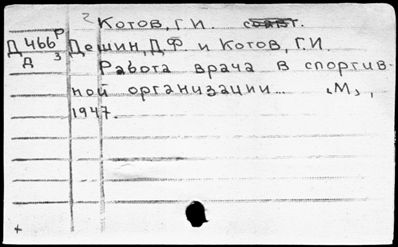 2 Котов, Г.И. соавт.
Д 466 Р Дешин, Д.Ф. и Котов, Г.И.
Д 3 Работа врача в спортив-
ной организации... "М",
1947.
+